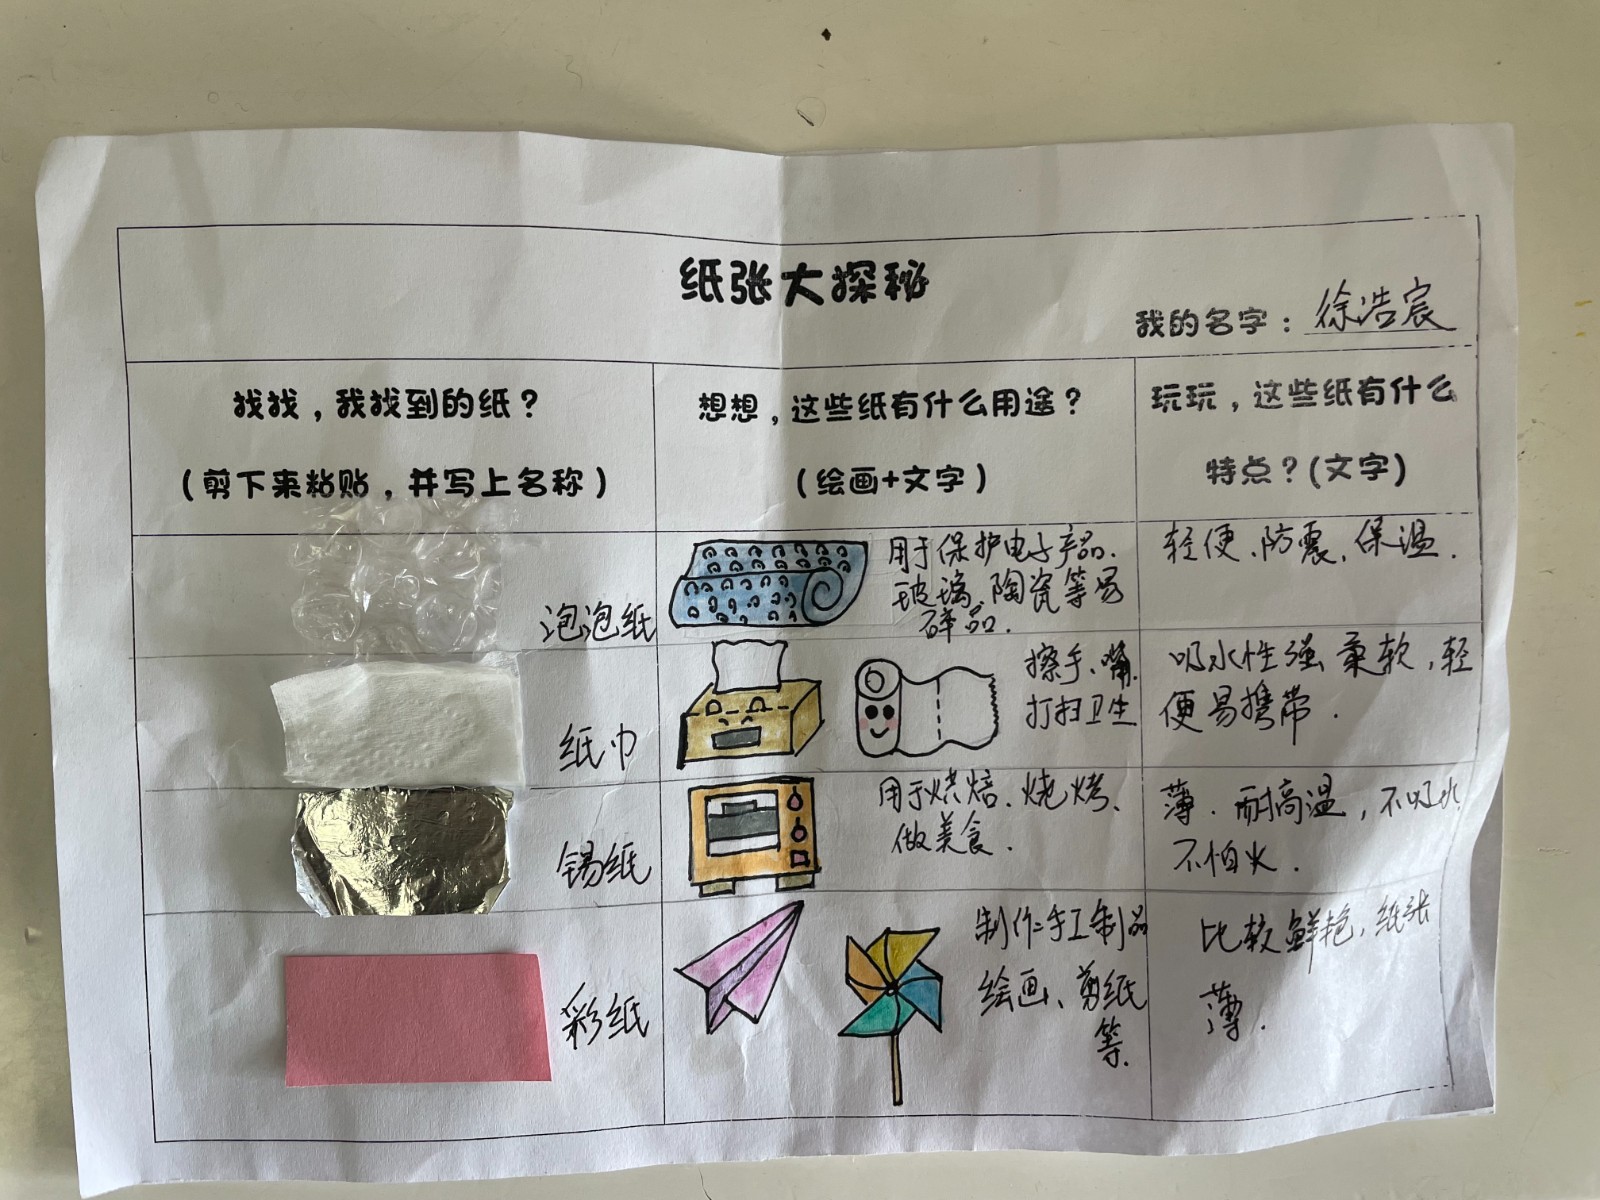 纸张大探秘
我的名字：徐浩宸
找找，我找到的纸？
（剪下来粘贴，并写上名称）
想想，这些纸有什么用途？
（绘画+文字）
玩玩，这些纸有什么
特点？(文字)
泡泡纸
用于保护电子产品、
玻璃、陶瓷等易
碎品.
轻便、防震、保温.
纸巾
擦手、嘴、
打扫卫生
吸水性强 柔软，轻
便易携带.
锡纸
用于烘焙、烧烤、
做美食.
薄. 耐高温，不吸水
不怕火.
彩纸
制作手工制品
绘画、剪纸
等.
比较鲜艳，纸张
薄.